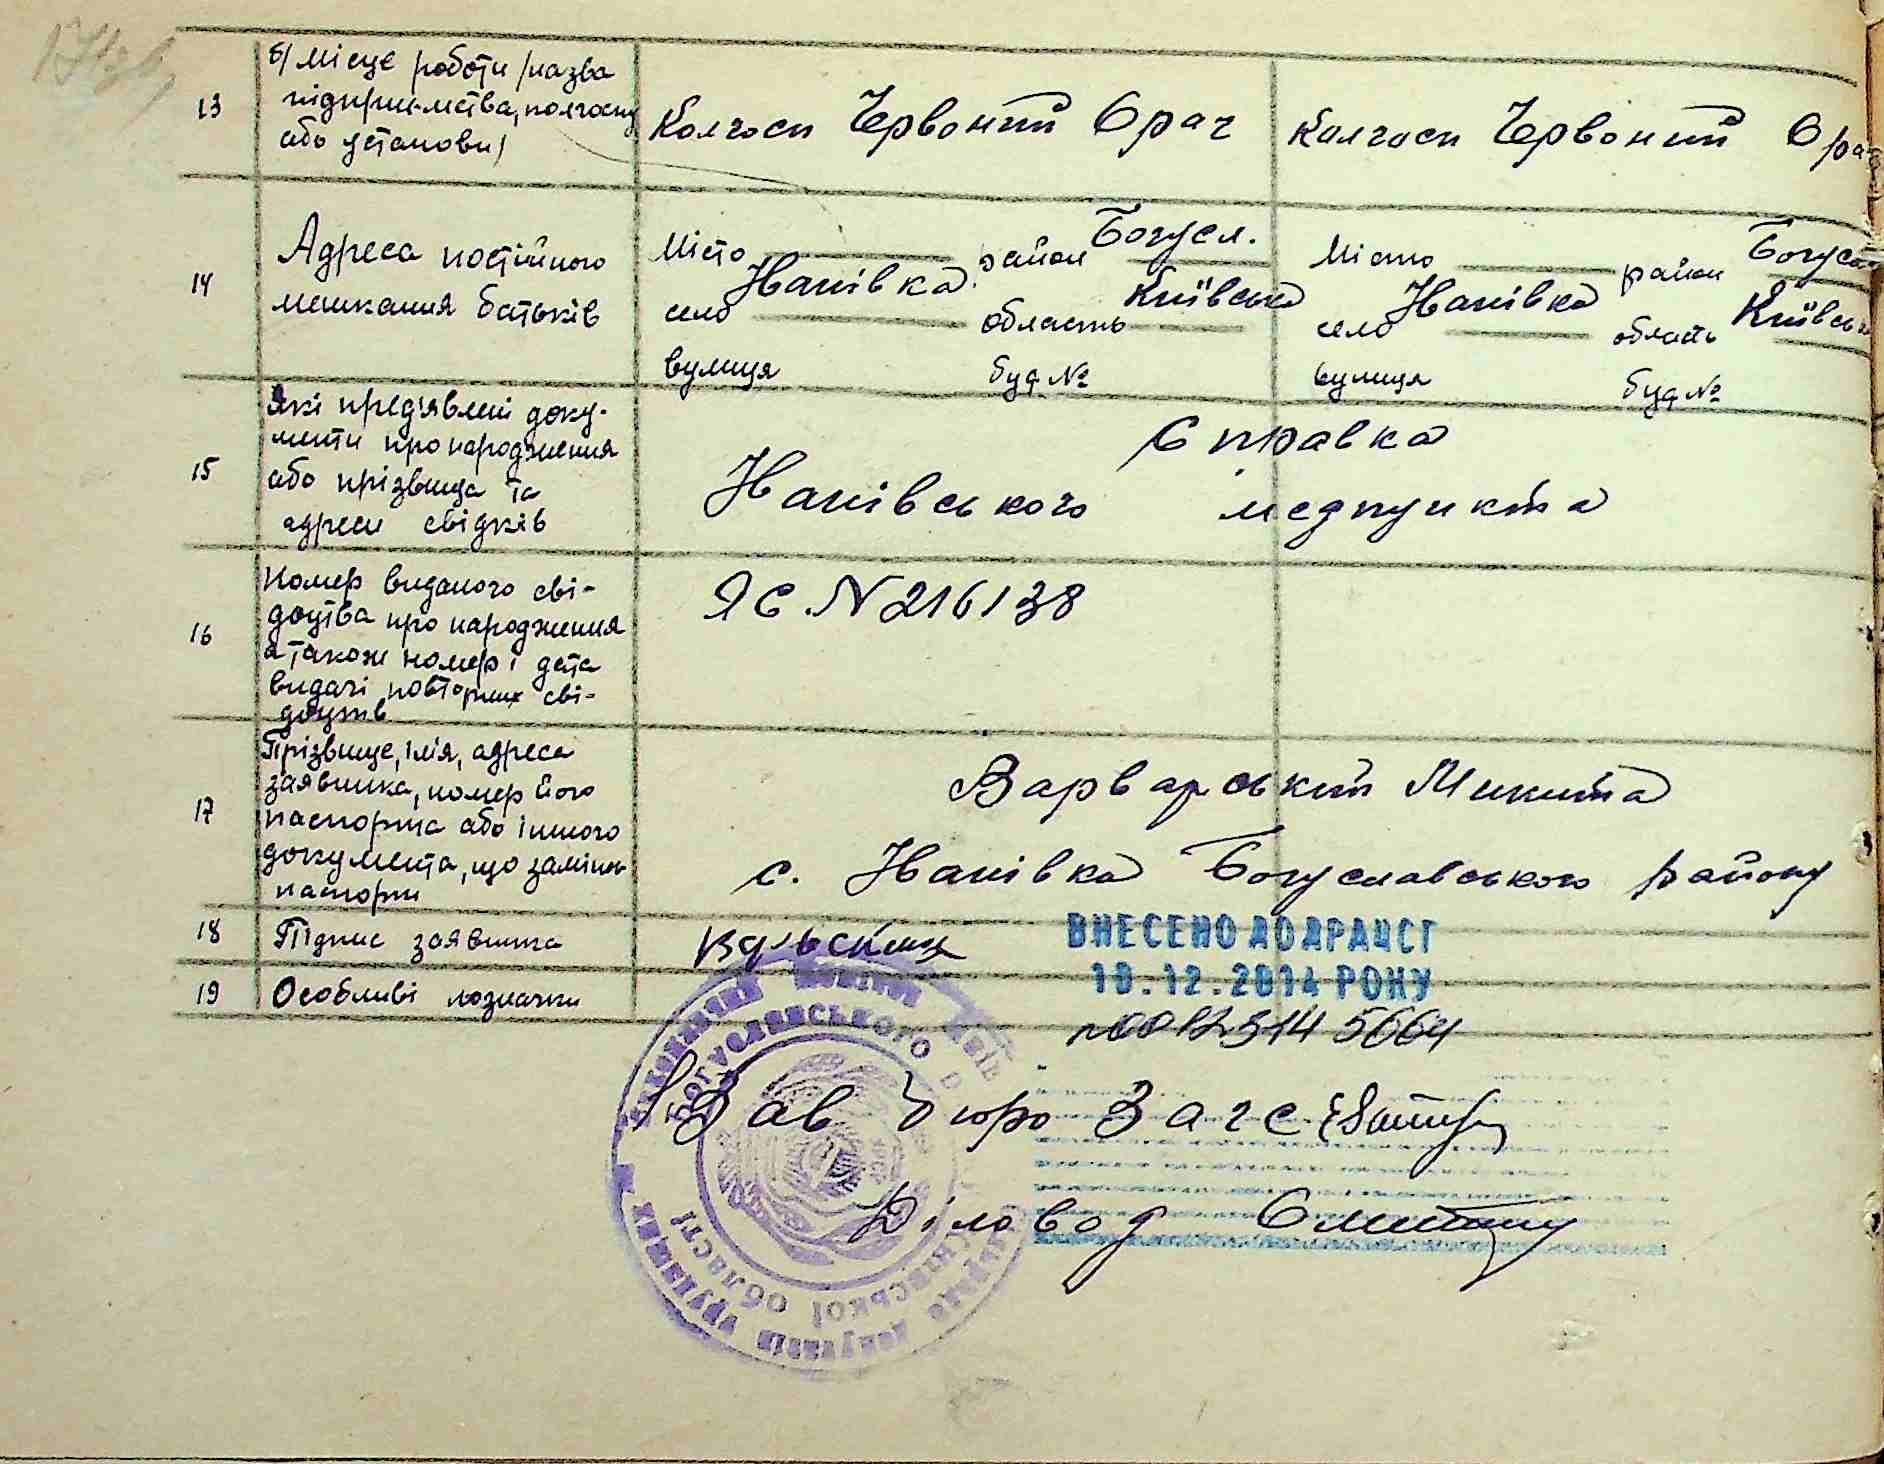 174зв
13
б/ Місце роботи /назва
підприємства, колгоспу
або установи/
Колгосп Червоний Орач
Колгосп Червоний Ора
14
Адреса постійного
мешкання батьків
Місто район Богусл.
село Іванівка область Київська
вулиця буд №
Місто район Богусл
село Іванівка область Київськ
вулиця буд №
15
Які пред'явлені доку-
менти про народження
або прізвища та
адреси свідків
Справка
Іванівського медпункта
16
Номер виданого сві-
доцтва про народження
а також номер і дата
видачі повторних сві-
доцтв
ЯС № 216138
17
Прізвище, ім'я, адреса
заявника, номер його
паспорта або іншого
документа, що замінює
паспорт
Варварський Микита
с. Іванівка Богуславського району
18
Підпис заявника
19
Особливі позначки
ВНЕСЕНО ДО ДРАЦСГ
10.12.2014 РОКУ
№00123145664
Зав бюро Загс
Діловод
Богуславського
Київської області
депутатів трудящих